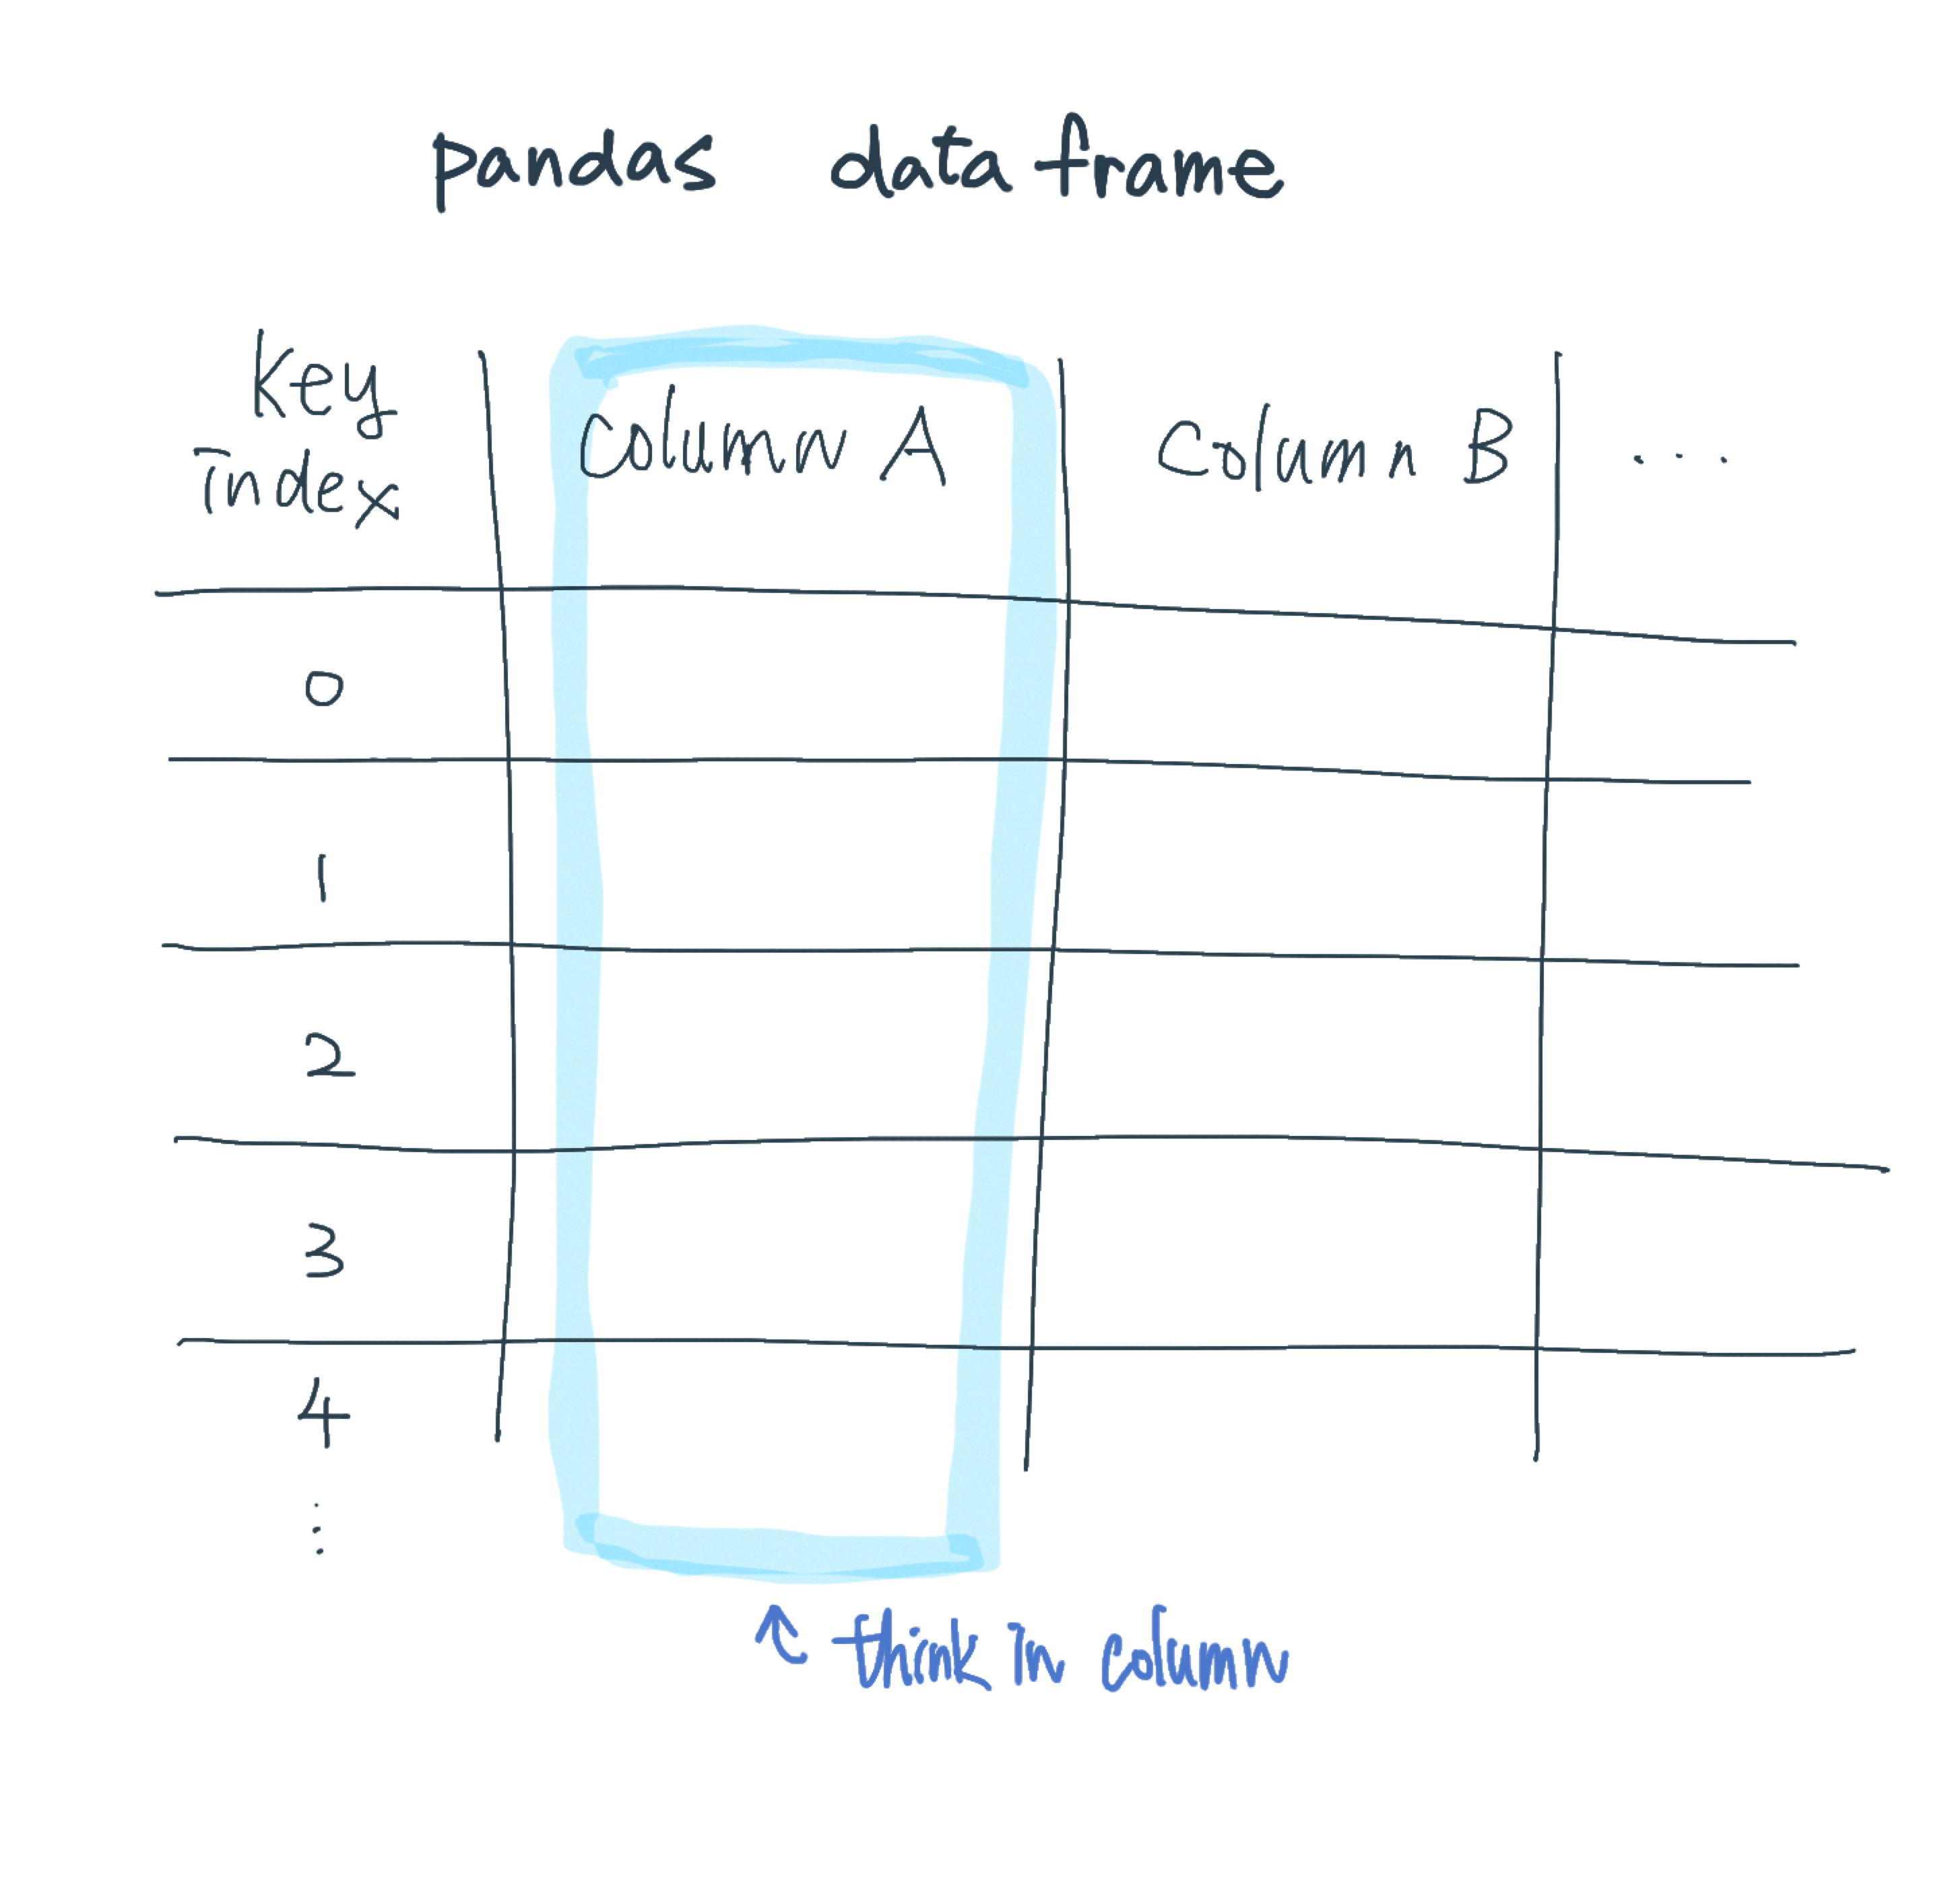 pandas data frame
Key
index
Column A
Column B
...
0
1
2
3
4
⋮
↑ think in column